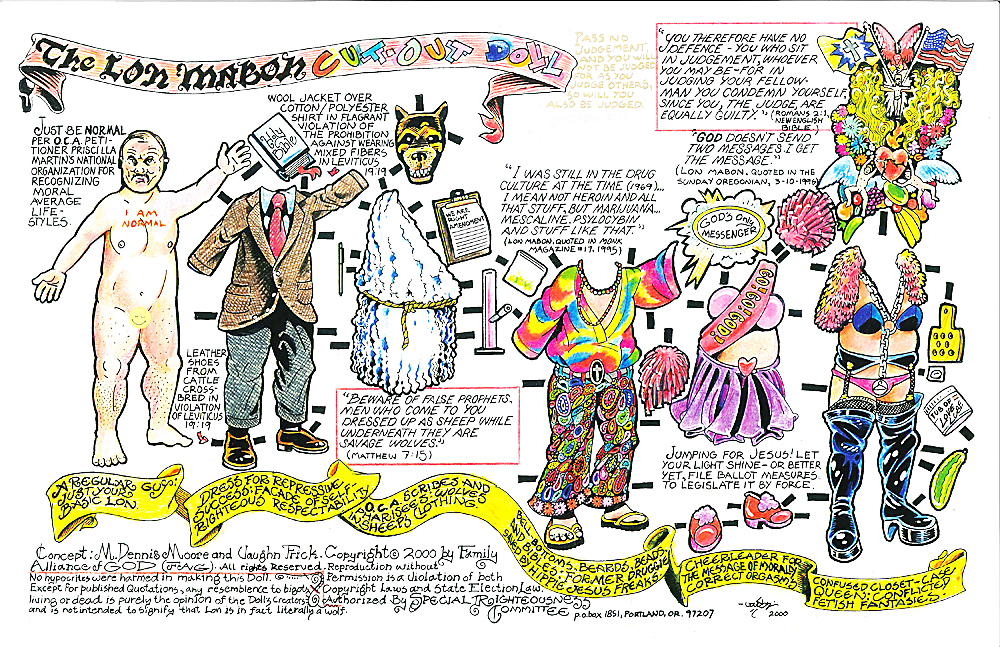 The LON MABON CUT-OUT DOLL
PASS NO
JUDGEMENT,
AND YOU WILL
NOT BE JUDGED
FOR AS YOU
JUDGE OTHERS,
SO WILL YOU
ALSO BE JUDGED.
"YOU THEREFORE HAVE NO
DEFENCE - YOU WHO SIT
IN JUDGEMENT, WHOEVER
YOU MAY BE - FOR IN
JUDGING YOUR FELLOW-
MAN YOU CONDEMN YOURSELF,
SINCE YOU, THE JUDGE, ARE
EQUALLY GUILTY." (ROMANS 2:1,
NEW ENGLISH
BIBLE.)
"GOD DOESN'T SEND
TWO MESSAGES. I GET
THE MESSAGE."
(LON MABON, QUOTED IN THE
SUNDAY OREGONIAN, 3-10-1996)
JUST BE NORMAL
PER O.C.A. PETI-
TIONER PRISCILLA
MARTIN'S NATIONAL
ORGANIZATION FOR
RECOGNIZING
MORAL
AVERAGE
LIFE-
STYLES.
I AM
NORMAL
WOOL JACKET OVER
COTTON/POLYESTER
SHIRT IN FLAGRANT
VIOLATION OF
THE PROHIBITION
AGAINST WEARING
MIXED FIBERS
IN LEVITICUS
19:19
Holy
Bible
WE ARE
RIGHT
AMENDMENT
"I WAS STILL IN THE DRUG
CULTURE AT THE TIME (1969)...
I MEAN NOT HEROIN AND ALL
THAT STUFF, BUT MARIJUANA...
MESCALINE, PSYLOCYBIN
AND STUFF LIKE THAT."
(LON MABON, QUOTED IN MONK
MAGAZINE #17, 1995)
GOD'S only
MESSENGER
GO! GO! GOD!
LEATHER
SHOES
FROM
CATTLE
CROSS-
BRED IN
VIOLATION
OF LEVITICUS
19:19
"BEWARE OF FALSE PROPHETS,
MEN WHO COME TO YOU
DRESSED UP AS SHEEP WHILE
UNDERNEATH THEY ARE
SAVAGE WOLVES."
(MATTHEW 7:15)
JUMPING FOR JESUS! LET
YOUR LIGHT SHINE - OR BETTER
YET, FILE BALLOT MEASURES
TO LEGISLATE IT BY FORCE.
TUB OF
LARD
A REGULAR GUY:
JUST YOUR
BASIC LON.
DRESS FOR REPRESSIVE
SUCCESS: FACADE OF SELF-
RIGHTEOUS RESPECTABILITY.
O.C.A. SCRIBES AND
PHARISEES: WOLVES
IN SHEEP'S CLOTHING.
BELL BOTTOMS, BEARDS, BEADS,
AND BIBLES: FORMER DRUGGIE
HIPPIE JESUS FREAKS.
CHEERLEADER FOR
THE MESSAGE OF MORALLY
CORRECT ORGASMS.
CONFUSED CLOSET-CASE
QUEEN: CONFLICTED
FETISH FANTASIES.
Concept: M. Dennis Moore and Vaughn Frick. Copyright © 2000 by Family
Alliance of GOD (FAG). All rights Reserved. Reproduction without
No hypocrites were harmed in making this Doll. Permission is a Violation of both
Except for published Quotations, any resemblence to bigots Copyright Laws and State Election Law.
living or dead is purely the opinion of the Dolls Creators Authorized By SPECIAL RIGHTEOUSNESS
and is not intended to signify that Lon is in fact literally a wolf. COMMITTEE p.o. box 1851, PORTLAND, OR. 97207
2000